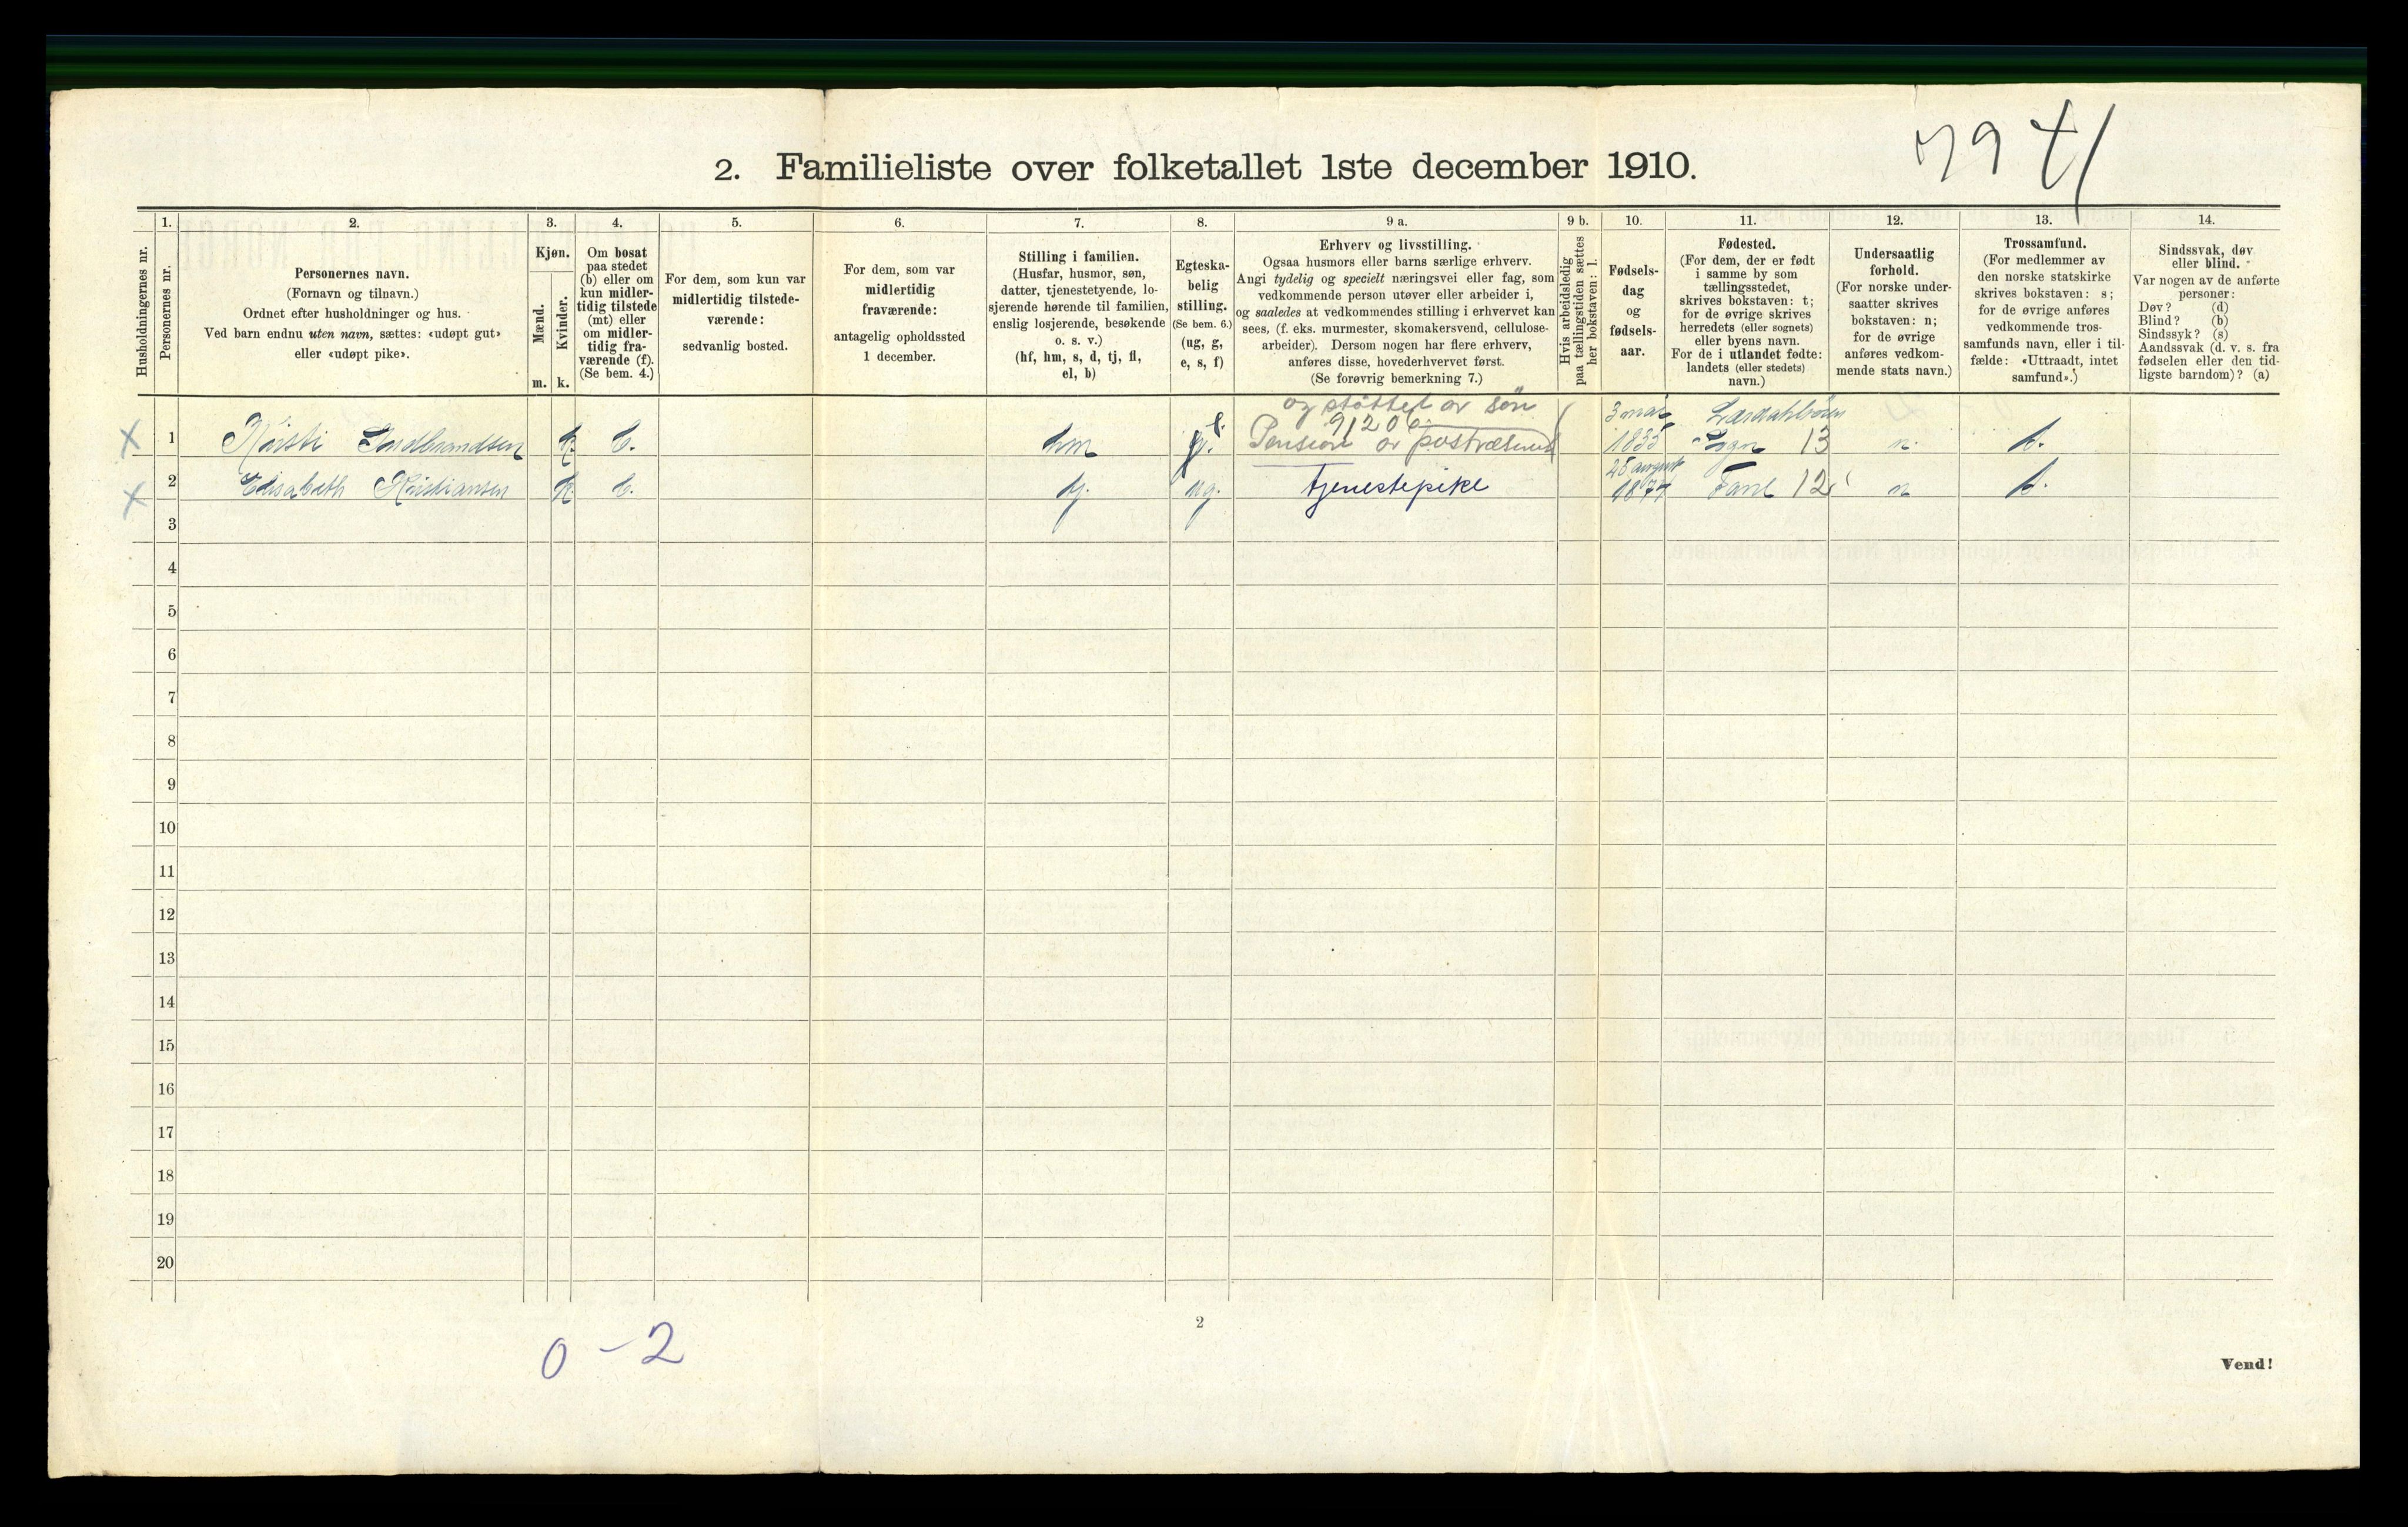 7941
2. Familieliste over folketallet 1ste december 1910.
Husholdningernes nr.
1.
Personernes nr.
2.
Personernes navn.
(Fornavn og tilnavn.)
Ordnet efter husholdninger og hus.
Ved barn endnu uten navn, sættes: «udøpt gut»
eller «udøpt pike».
3.
Kjøn.
Mænd.
Kvinder.
m. k.
4.
Om bosat
paa stedet
(b) eller om
kun midler-
tidig tilstede
(mt) eller
om midler-
tidig fra-
værende (f).
(Se bem. 4.)
5.
For dem, som kun var
midlertidig tilstede-
værende:
sedvanlig bosted.
6.
For dem, som var
midlertidig
fraværende:
antagelig opholdssted
1 december.
7.
Stilling i familien.
(Husfar, husmor, søn,
datter, tjenestetyende, lo-
sjerende hørende til familien,
enslig losjerende, besøkende
o. s. v.)
(hf, hm, s, d, tj, fl,
el, b)
8.
Egteska-
belig
stilling.
(Se bem. 6.)
(ug, g,
e, s, f)
9 a.
Erhverv og livsstilling.
Ogsaa husmors eller barns særlige erhverv.
Angi tydelig og specielt næringsvei eller fag, som
vedkommende person utøver eller arbeider i,
og saaledes at vedkommendes stilling i erhvervet kan
sees, (f. eks. murmester, skomakersvend, cellulose-
arbeider). Dersom nogen har flere erhverv,
anføres disse, hovederhvervet først.
(Se forøvrig bemerkning 7.)
9 b.
Hvis arbeidsledig
paa tællingstiden sættes
her bokstaven: l.
10.
Fødsels-
dag
og
fødsels-
aar.
11.
Fødested.
(For dem, der er født
i samme by som
tællingsstedet,
skrives bokstaven: t;
for de øvrige skrives
herredets (eller sognets)
eller byens navn.
For de i utlandet fødte:
landets (eller stedets)
navn.)
12.
Undersaatlig
forhold.
(For norske under-
saatter skrives
bokstaven: n;
for de øvrige
anføres vedkom-
mende stats navn.)
13.
Trossamfund.
(For medlemmer av
den norske statskirke
skrives bokstaven: s;
for de øvrige anføres
vedkommende tros-
samfunds navn, eller i til-
fælde: «Uttraadt, intet
samfund».)
14.
Sindssvak, døv
eller blind.
Var nogen av de anførte
personer:
Døv? (d)
Blind? (b)
Sindssyk? (s)
Aandssvak (d. v. s. fra
fødselen eller den tid-
ligste barndom)? (a)
og støttet av søn
91200 3 mai
X 1 Kirsti k. b. hm Pension av 1833 Sogn 13 n. s.
25 august
X 2 Elisabeth Kristiansen k. b. tj. ug. tjenestepike Fane 12 n s.
3
4
5
6
7
8
9
10
11
12
13
14
15
16
17
18
19
20
0 - 2
2
Vend!